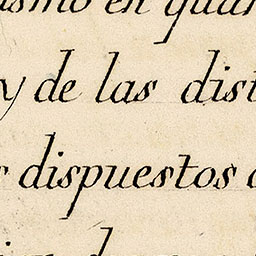 ismo en quan
y de las dist
s dispuestos